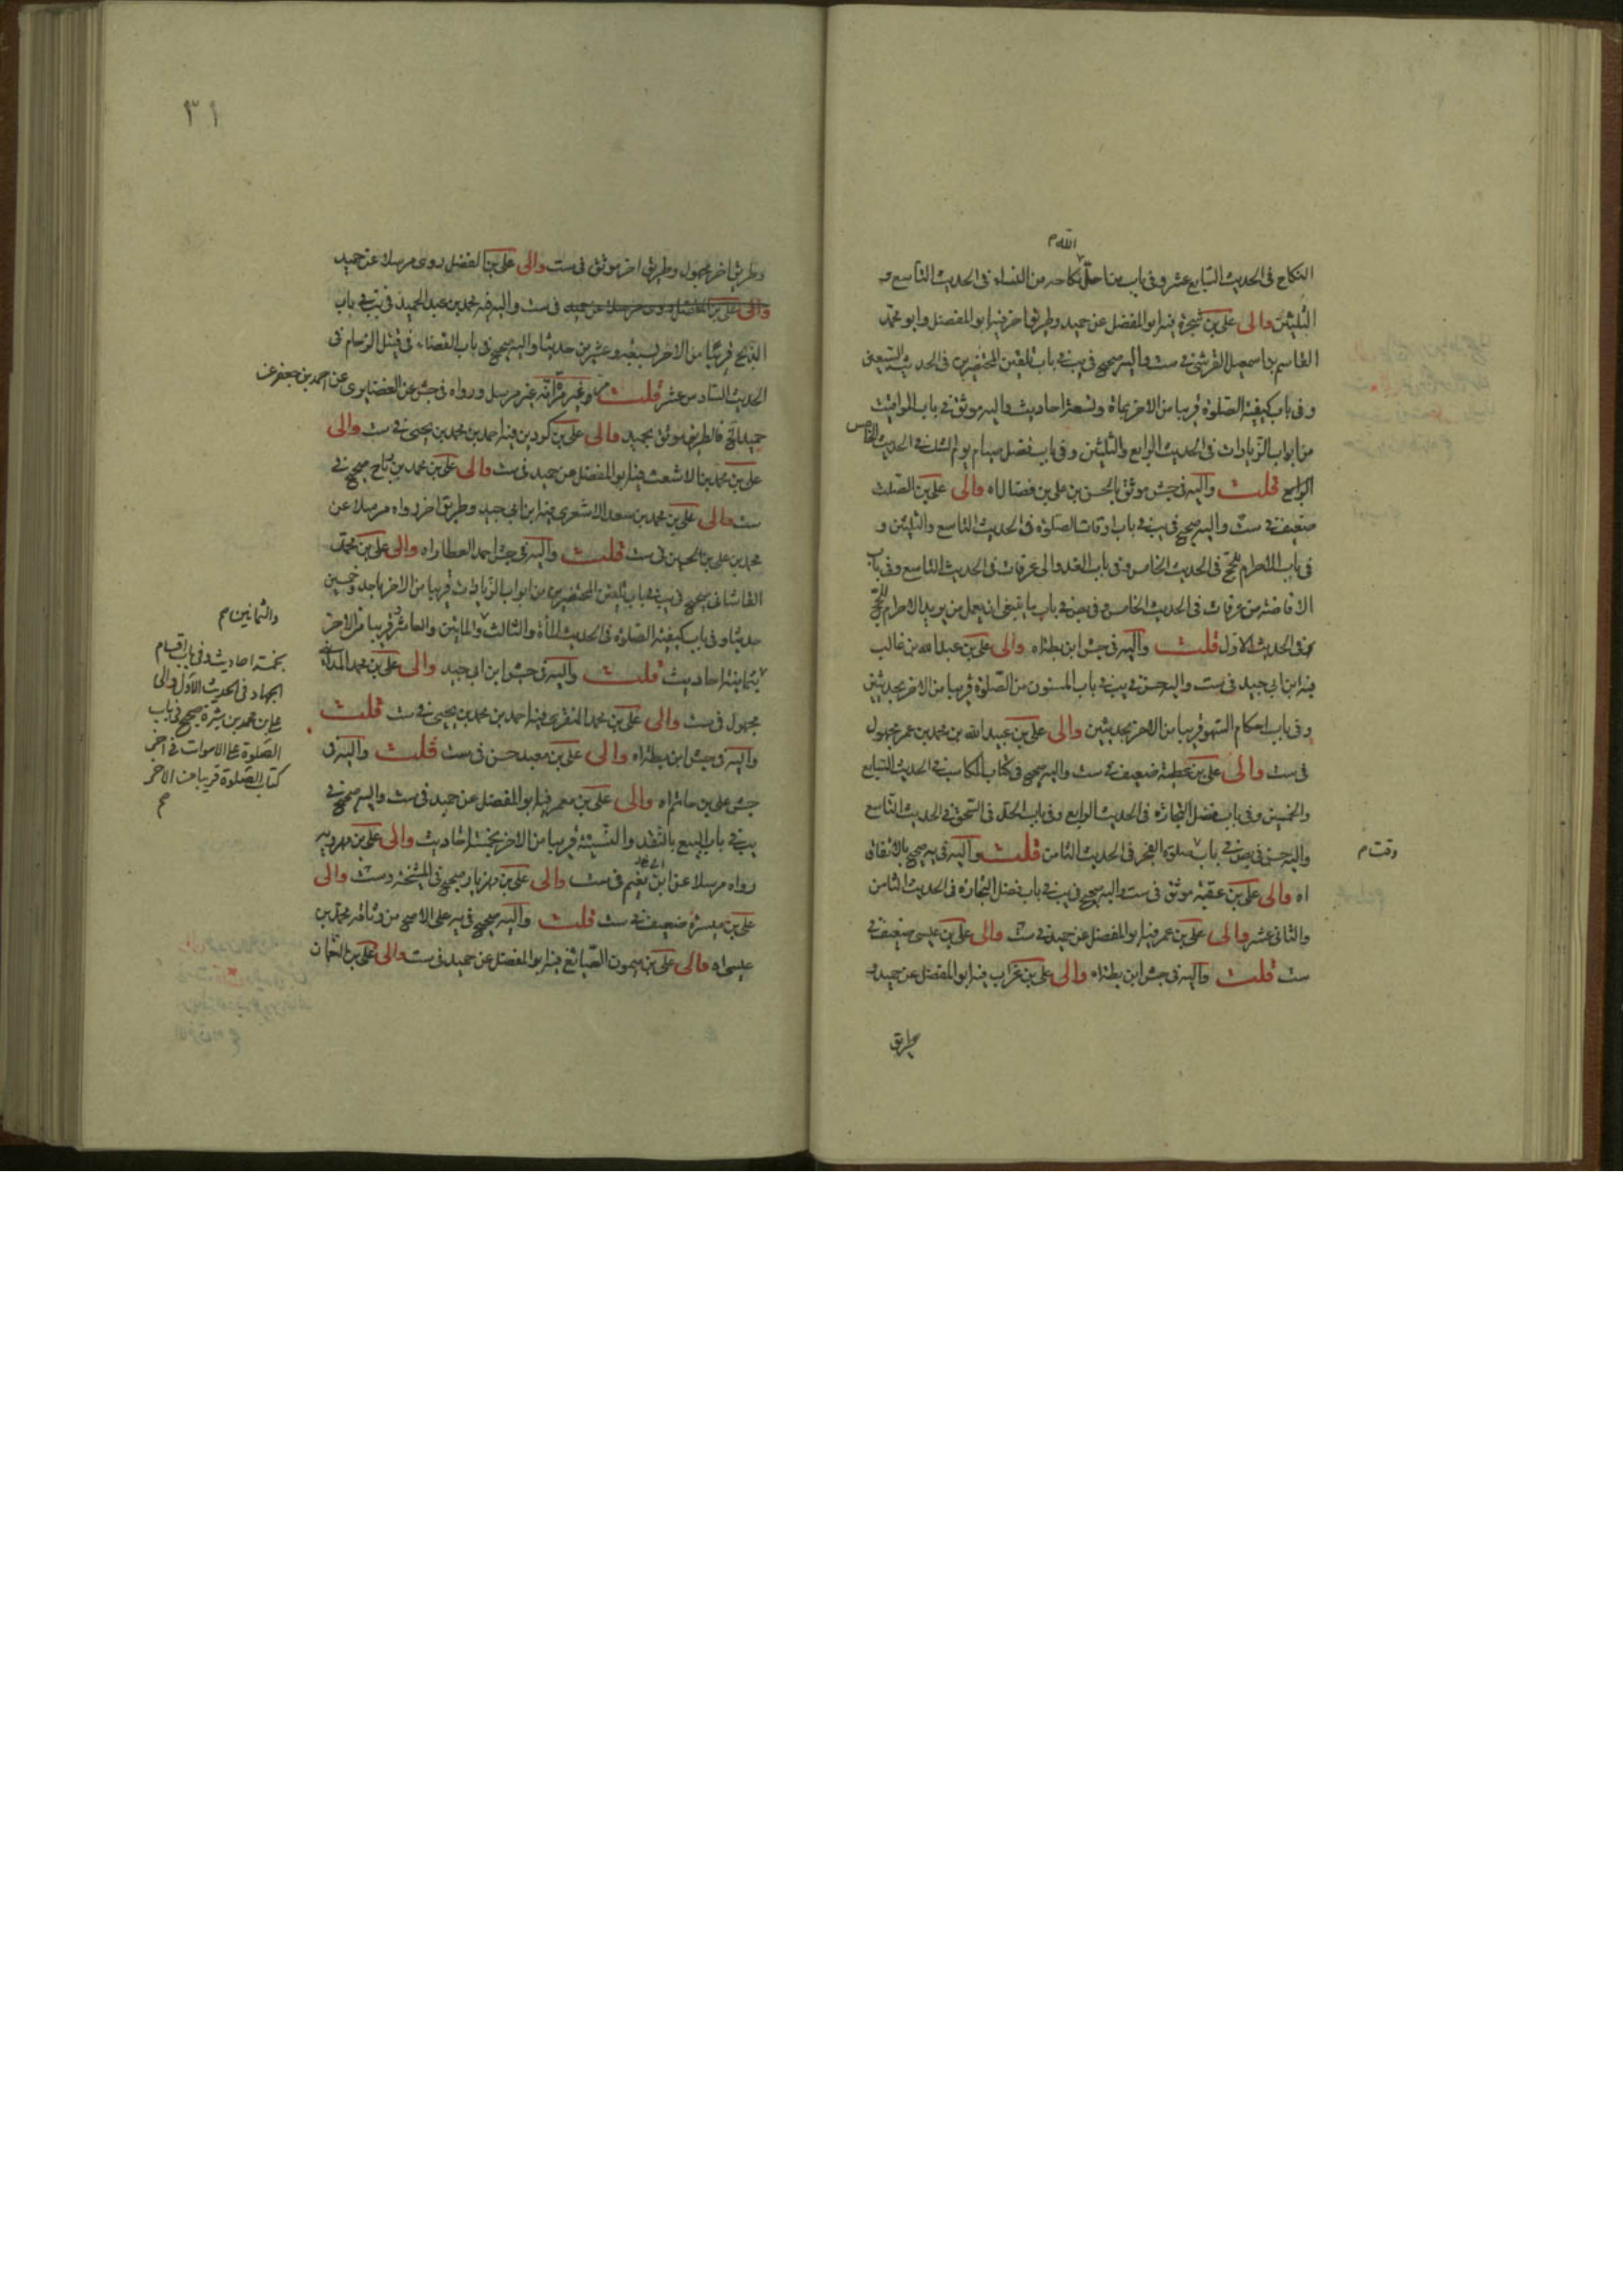 الله م
النكاح في الحديث السابع عشر وفي باب من احل نكاحه من النساء في الحديث التاسع و
الثلثين والى علي بن شجرة فيه ابو المفضل عن حميد وطريق اخر فيه ابو المفضل وابو محمد
القاسم بن اسمعيل القرشي في ست واليه صحيح في يب في باب تلقين المحتضرين في الحديث التسعين
وفي باب كيفية الصلوة قريبا من الاخر بمائة وتسعة احاديث واليه موثق في باب المواقيت
من ابواب الزيادات في الحديث الرابع والثلثين وفي باب فضل صيام يوم الشك في الحديث الخامس
الرابع قلت واليه في جش موثق بالحسن بن علي بن فضال اه والى علي بن الصلت
ضعيف في ست واليه صحيح في يب في باب اوقات الصلوة في الحديث التاسع والثلثين و
في باب الاحرام للحج في الحديث الخامس وفي باب الغدو الى عرفات في الحديث التاسع وفي باب
الافاضة من عرفات في الحديث الخامس وفي بص في باب ما ينبغي ان يعمل من يريد الاحرام للحج
في الحديث الاول قلت واليه في جش ابن بطة اه والى علي بن عبد الله بن غالب
فيه ابن ابي جيد في ست واليه حسن في يب في باب المسنون من الصلوة قريبا من الاخر بحديثين
وفي باب احكام السهو قريبا من الاخر بحديثين والى علي بن عبيد الله بن محمد بن عمر مجهول
في ست والى علي بن عطية ضعيف في ست واليه صحيح في كتاب المكاسب في الحديث السابع
والخمسين وفي باب فضل التجارة في الحديث الرابع وفي باب الحد في السحق في الحديث التاسع
واليه حسن في بص في باب صلوة الفجر في الحديث الثامن قلت واليه في يه صحيح بالاتفاق
وقت م
اه والى علي بن عقبة موثق في ست واليه صحيح في يب في باب فضل التجارة في الحديث الثامن
والثاني عشر والى علي بن عمر فيه ابو المفضل عن حميد في ست والى علي بن عيسى ضعيف في
ست قلت واليه في جش ابن بطة اه والى علي بن غراب فيه ابو المفضل عن حميد و
طريق
٣١
وطريق اخر مجهول وطريق اخر موثق في ست والى علي بن الفضل روى مرسلا عن حميد
والى علي بن الفضل روى مرسلا عن حميد في ست واليه فيه محمد بن عبد الحميد في يب في باب
الذبح قريبا من الاخر بسبعة وعشرين حديثا واليه صحيح في باب القضاء في قتيل الزحام في
الحديث السادس عشر قلت وغير قرائة غير مرسل ورواه في جش عن الغضايري عن احمد بن جعفر عن
حميد الخ فالطريق موثق بحميد والى علي بن كردين فيه احمد بن محمد بن يحيى في ست والى
علي بن محمد بن الاشعث فيه ابو المفضل عن حميد في ست والى علي بن محمد بن رباح صحيح في
ست والى علي بن محمد بن سعد الاشعري فيه ابن ابي جيد وطريق اخر رواه مرسلا عن
محمد بن علي بن الحسين في ست قلت واليه في جش احمد العطار اه والى علي بن محمد
القاشاني صحيح في يب في باب تلقين المحتضرين من ابواب الزيادات قريبا من الاخر باحد وخمسين
حديثا وفي باب كيفية الصلوة في الحديث المأة والثالث والمايتين والعاشر قريبا من الاخر
بثمانية احاديث قلت واليه في جش ابن ابي جيد والى علي بن محمد المدائني
مجهول في ست والى علي بن محمد المنقري فيه احمد بن محمد بن يحيى في ست قلت
واليه في جش ابن بطة اه والى علي بن معبد حسن في ست قلت واليه في
جش علي بن حاتم اه والى علي بن معمر فيه ابو المفضل عن حميد في ست واليه صحيح في
يب في باب البيع بالنقد والنسيئة قريبا من الاخر بخمسة احاديث والى علي بن مهرويه
رواه مرسلا عن ابن نعيم في ست والى علي بن مهزيار صحيح في المشيخة وست والى
علي بن ميسرة ضعيف في ست قلت واليه صحيح في يه على الاصح من وثاقة محمد بن
عيسى اه والى علي بن ميمون الصائغ فيه ابو المفضل عن حميد في ست والى علي بن النعمان
والثمانين م
بخمسة احاديث وفي باب اقسام
الجهاد في الحديث الاول والى
علي بن محمد بن شيرة صحيح في باب
الصلوة على الاموات في اخر
كتاب الصلوة قريبا من الاخر
م